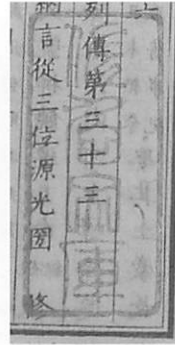 六
列傳第三十三
言從三位源光圀 修